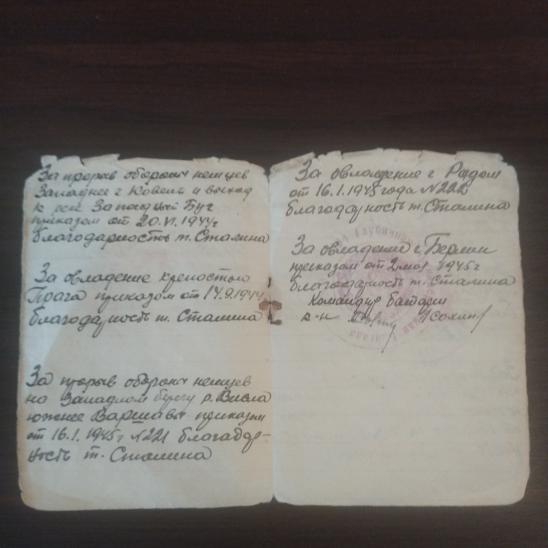 За прорыв обороны немцев
Западнее г Ковель и выход
к реке Западный Буг
приказом от 20.VI.1944г
благодарность т. Сталина
За овладение крепостью
Прага приказом от 14.9.1944г
благодарность т. Сталина
За прорыв обороны немцев
на Западном берегу р. Висла
южнее Варшавы приказом
от 16.1.1945г №221 благодар-
ность т. Сталина
За овладение г Радом
от 16.1.1945 года №222
благодарность т. Сталина
За овладение г. Берлин
приказом от 2 мая 1945г
благодарность т. Сталина
Командир батареи
к-н